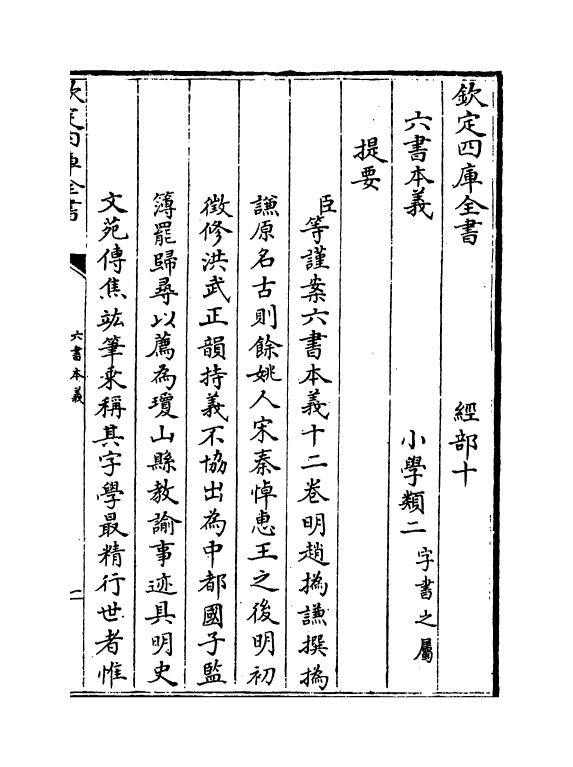 欽定四庫全書 經部十
六書本義 小學類二 字書之屬
提要
臣等謹案六書本義十二卷明趙撝謙撰撝
謙原名古則餘姚人宋秦悼惠王之後明初
徵修洪武正韻持義不協出為中都國子監
簿罷歸尋以薦為瓊山縣教諭事迹具明史
文苑傳焦竑筆乗稱其字學最精行世者惟
欽定四庫全書
六書本義